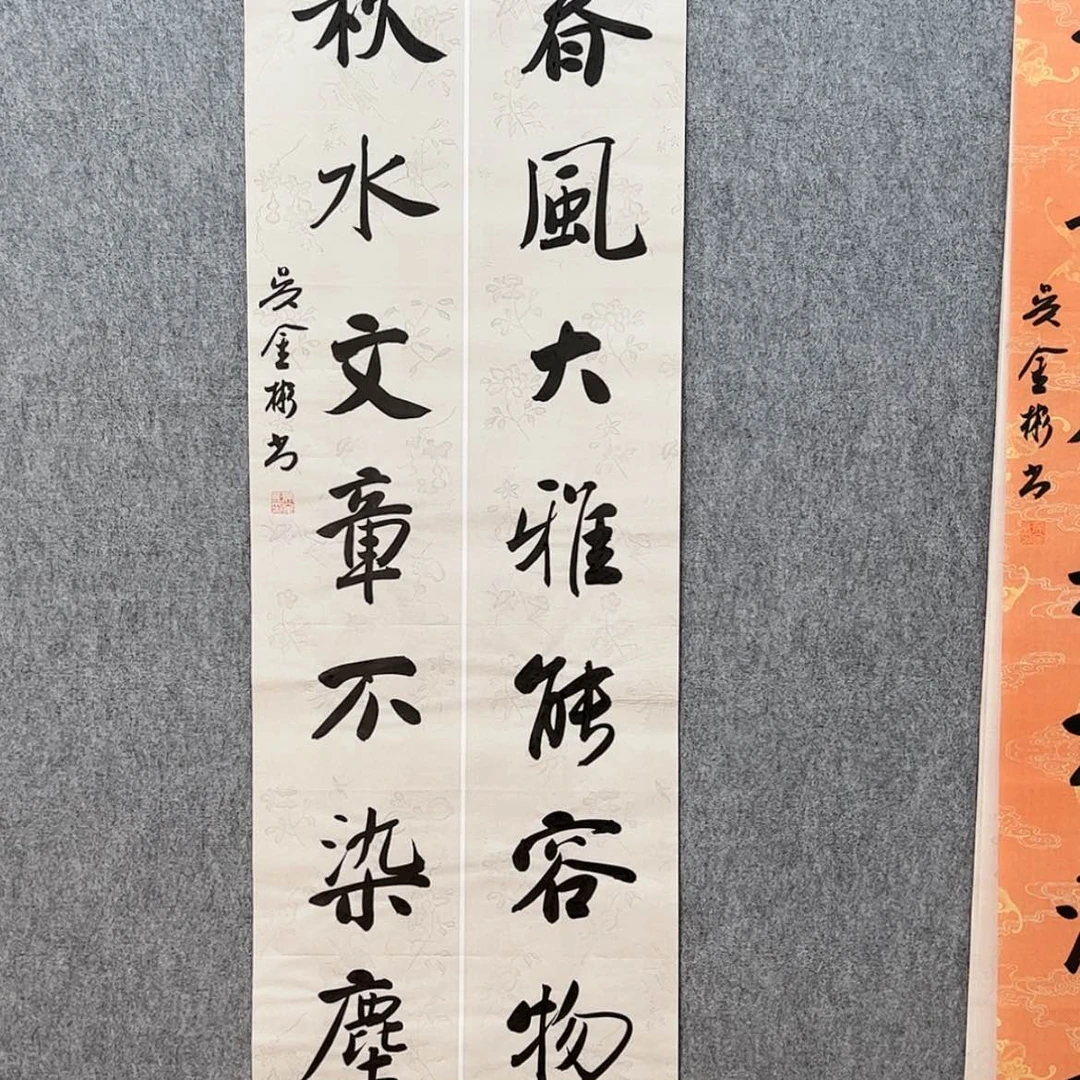 春風大雅能容物
秋水文章不染塵
吴金彬书
吴金彬书